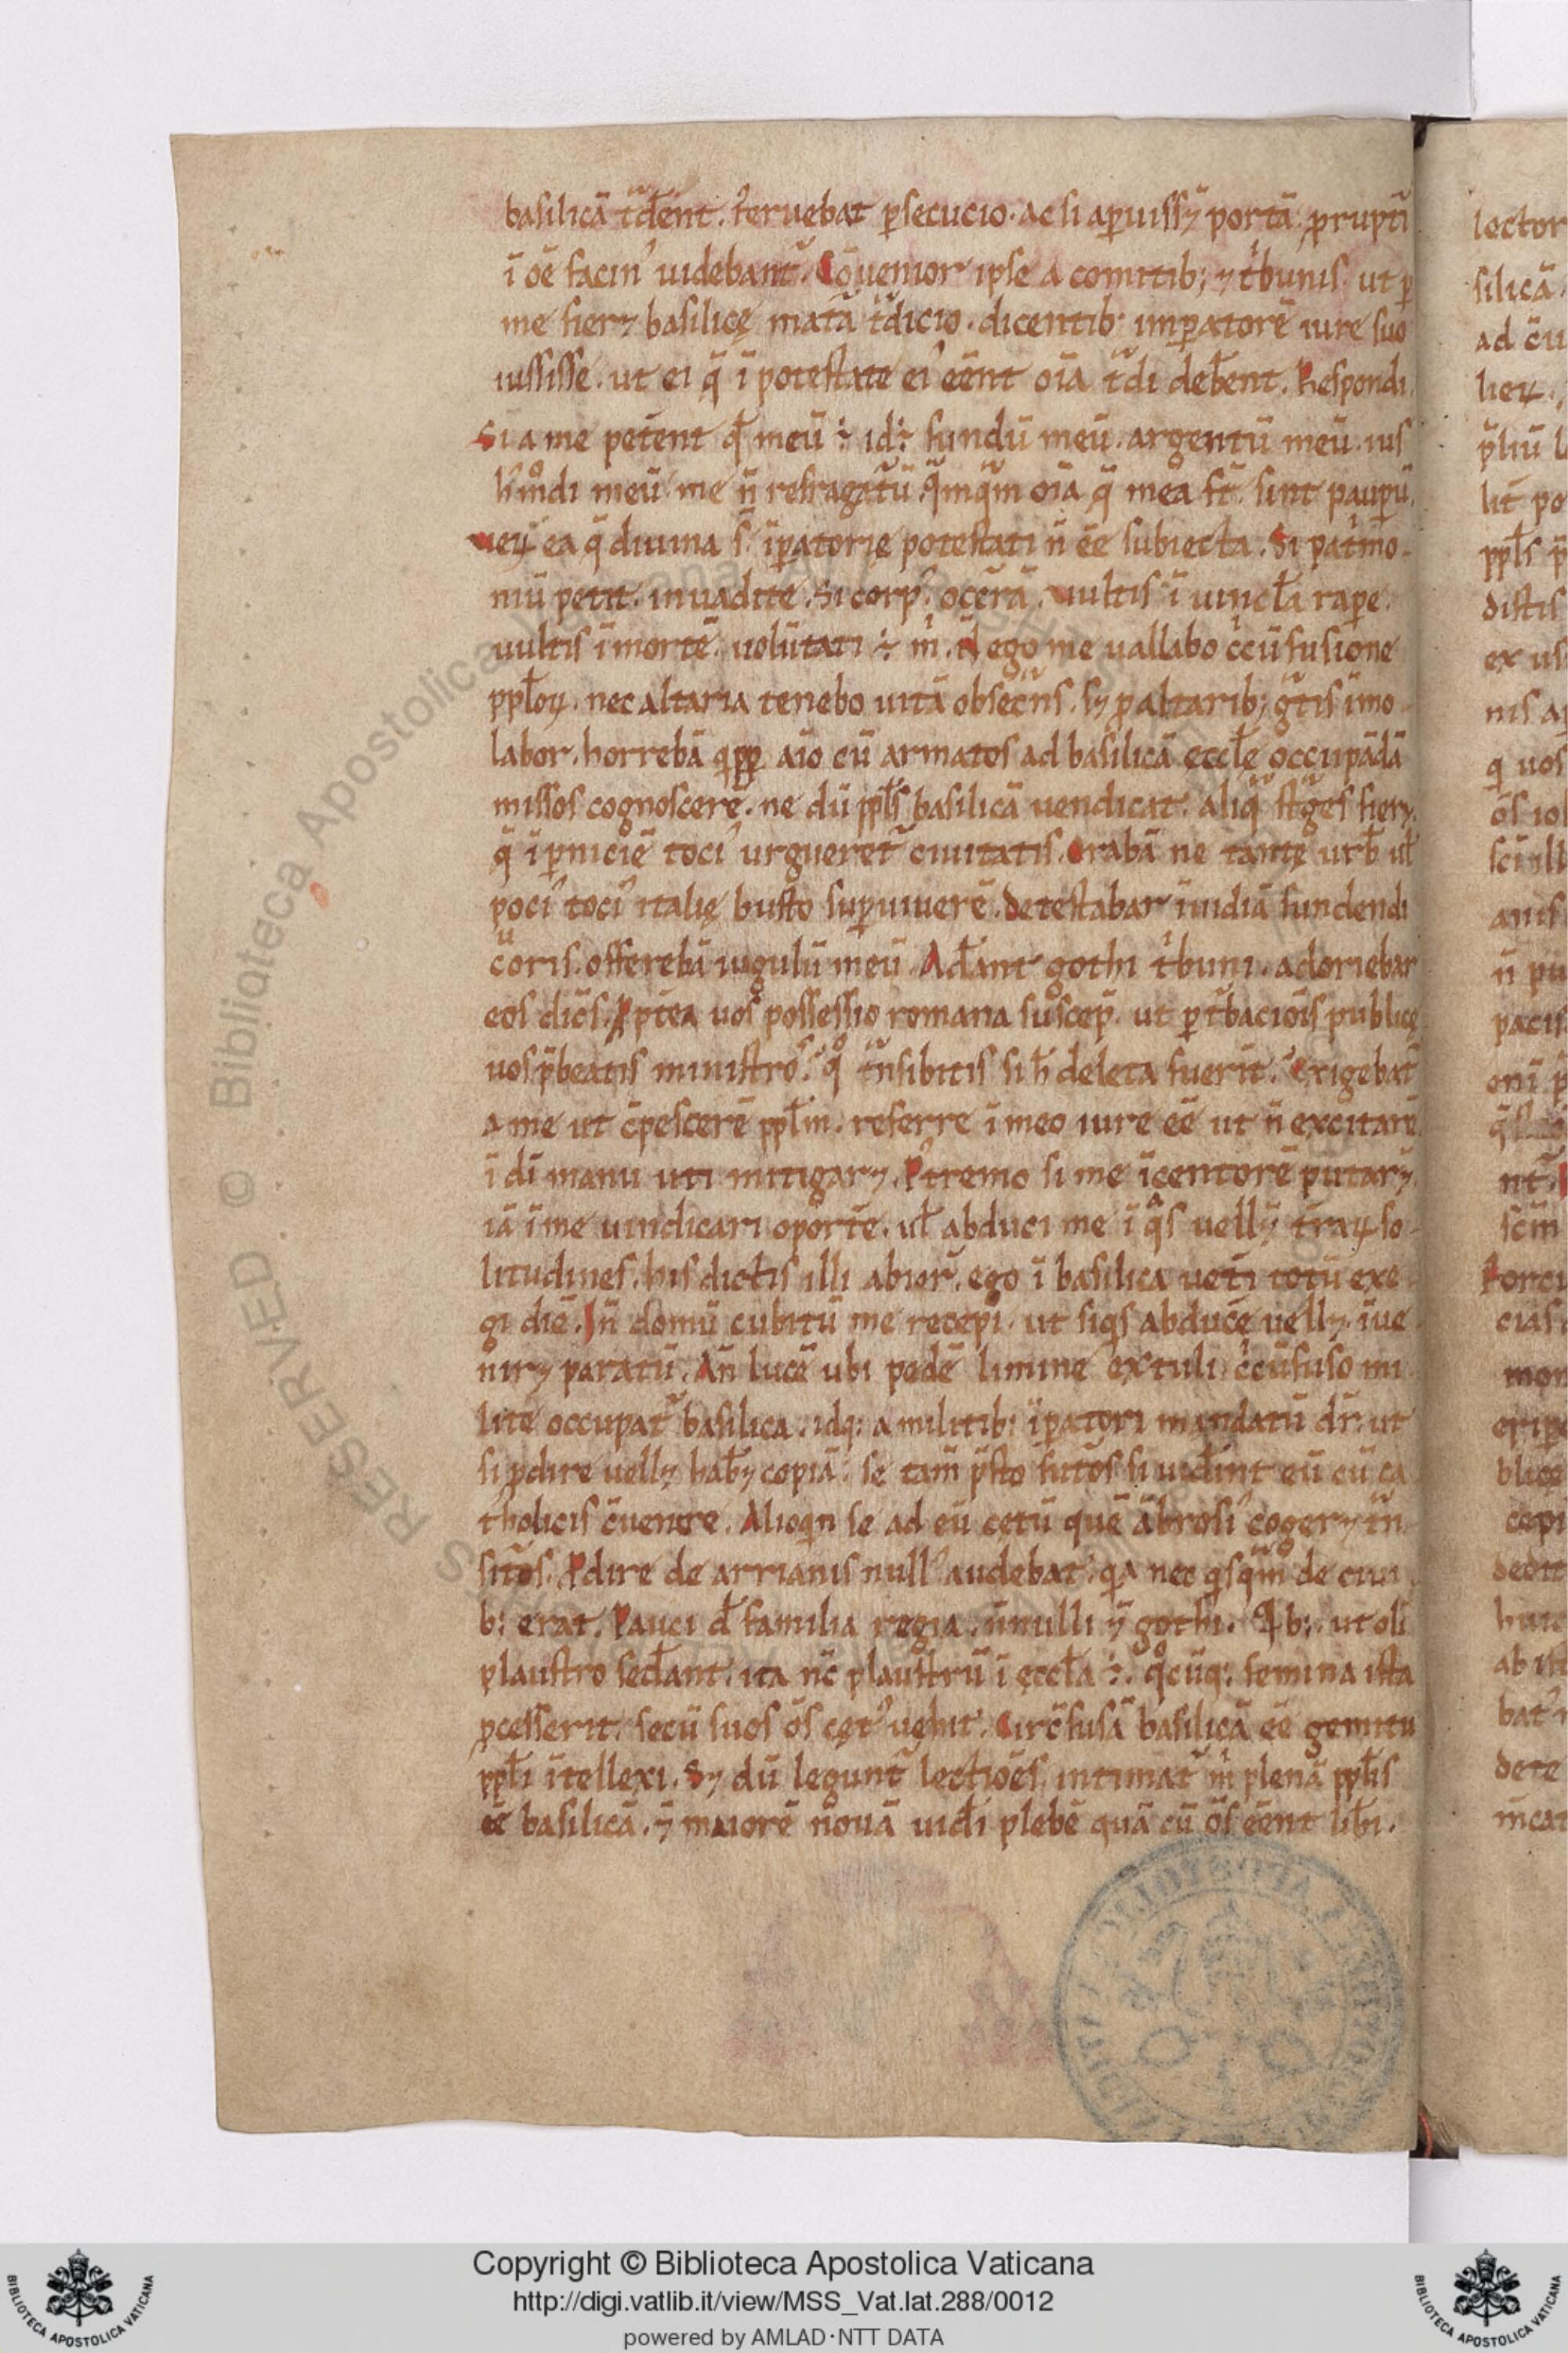 basilicā t̃dẽnt. feruebat ꝑsecucio. ac si aꝑuissꝫ portā, prupti
ī oē facin᾽ uidebant᷑. Cōuenior ipse a comitib; ⁊ tͥbunis. ut ꝑ
me fierꝫ basilicę matã t̃dicio. dicentib᷑ imꝑatorē iure suo
iussisse. ut ei q̄ ī potestate ei᾽ eēnt oīa t̃di deb̄ent. Respondi.
Si a me petēnt qd̄ meū ÷ id÷ fundū meū. argentū meū. ius
h᾽mͦdi meū. me n̄ refragat᷑ū. q̃mq̃m oīa q̄ mea sᷓt. sint pauꝑū.
ueꝝ ea q̄ diuina s̄. īꝑatorię potestati n̄ eē subiecta. Si patͥmo-
niū petit. inuadite. Si corp᾽. occ̄rā. uultis ī uincl̄a raꝑe.
uultis ī mortē. uolūtati ÷ mͥ. N̄ ego me uallabo cͥcūfusione
ppl̄oꝝ. nec altaria tenebo uitā obsecᷓns. sꝫ ꝓ altarib; gᷓtis īmo-
labor. horrebā qͥppe aīo cū armatos ad basilicā eccl̄ę occupādā
missos cognoscerē. ne dū ppl̄s basilicā uendicat. aliqᷓ stᷓges fierꝫ.
q̄ ī ꝑniciē toci᾽ urgueret᷑ ciuitatis. Orabā ne tantę urb̄ ul̄
poci᾽ toci᾽ italię busto suꝑuiuerē. Detestabar īuidiā fundendi
cͧoris. offerebā iugulū meū. Ad̄ant gothi tͥbuni. adoriebar
eos dicēs. Ꝓpt̄ea uos possessio romana suscep̄. ut ꝑt᷑bacioīs publicę
uos p̄beatis ministros. qͦ tᷓnsibitis si h̄ deleta fuerīt. Exigebat᷑
a me ut cōpescerē ppl̄m. referre ī meo iure eē ut n̄ excitarē
ī dī manu uti mitigarꝫ. Ptremo si me īcentorē putarꝫ
iā ī me uindicari oportē. ul̄ abduci me ī qͣs uellꝫ t̄raꝝ so-
litudines. his dictis illi abier᷑. ego ī basilica uet̄i totū exe-
gi diē. In̄ domū cubitū me recepi. ut siqͥs abducē uellꝫ īue-
nirꝫ paratū. An̄ lucē ubi pedē limine extuli cͥcūfuso mi
lite occupat᷑ basilica. idq; a militib; īꝑatori mandatū dr̄. ut
si ꝓdire uellꝫ hab̄ꝫ copiā. se tam̄ p̄sto fut᷑os si uid̄int eū cū ca
tholicis cuenire. Alioqͥn se ad eū cetū quē ābrosi᾽ cogerꝫ tᷓn-
sit᷑os. Pdire de arrianis null᾽ audebat. qͥa nec qͥsqᷓm de ciui
b; erat. Pauci d̄ familia regia. n̄nulli ⁊ gothi. Qͥb; ut olī
plaustro sed̄ant, ita nc̄ plaustrū ī eccl̄a ÷. qͦcūq; femina ista
ꝓcesserit. secū suos ōs cęt᾽ uehit. Circūfusā basilicā eē gemitu
ppl̄i ītellexi. Sꝫ dū legunt᷑ lectioēs intimat᷑ mͥ plenā ppl̄is
eē basilicā. ⁊ maiorē nouā uid̄i plebē quā cū ōs eēnt lib̄i.
lector
silicā.
ad cū
ex us
q uos
anis
pacis
mon
copi
bat᾽
dete
Copyright © Biblioteca Apostolica Vaticana
http://digi.vatlib.it/view/MSS_Vat.lat.288/0012
powered by AMLAD·NTT DATA